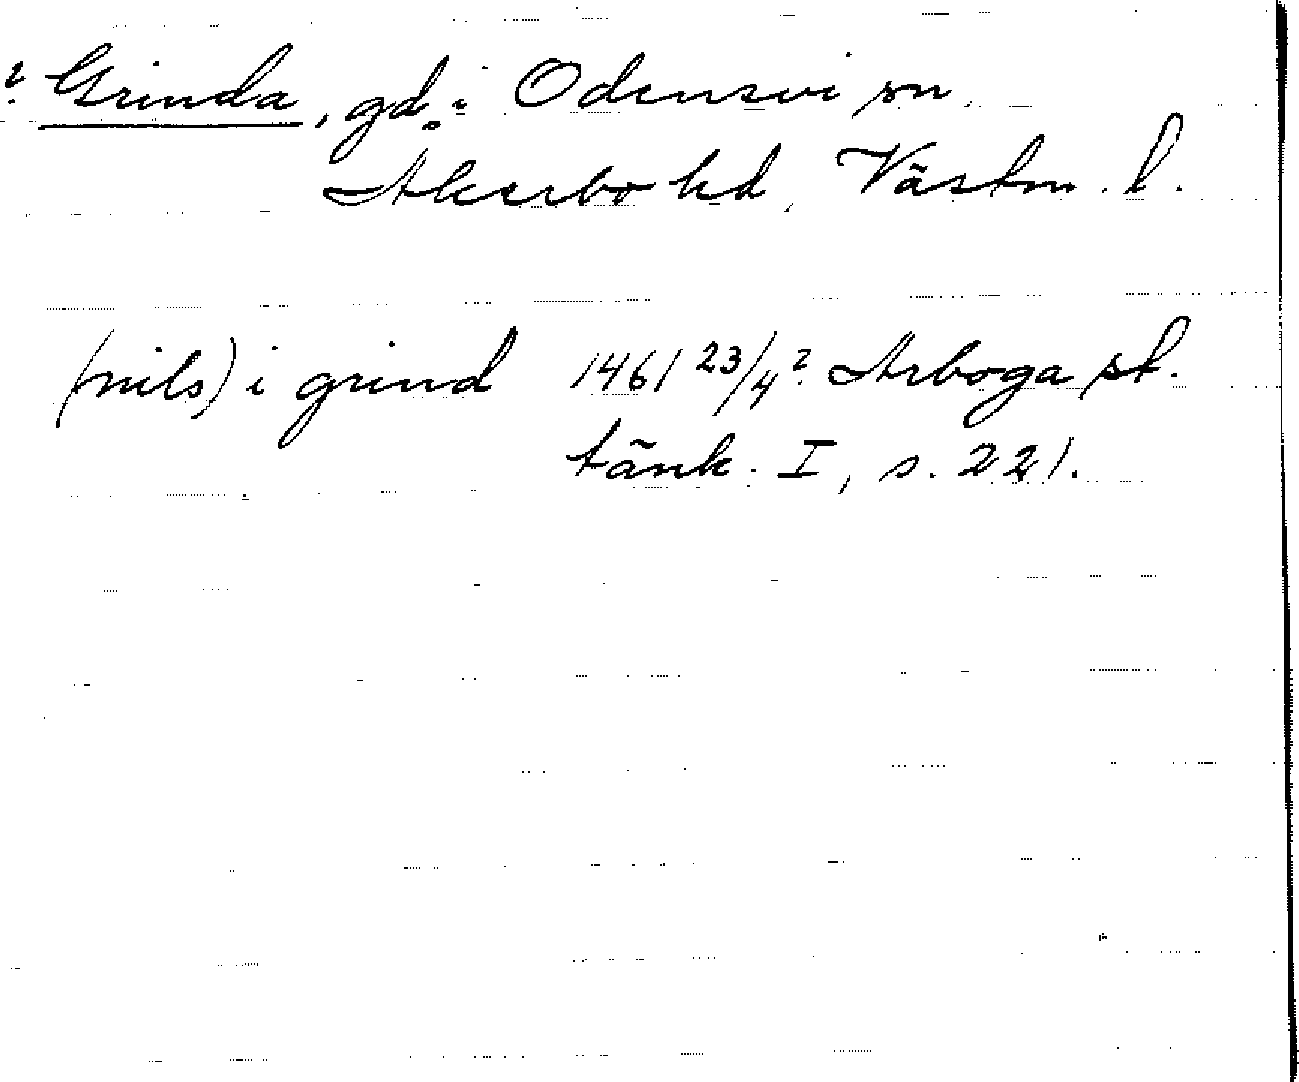 ? Grinda, gd i Odensvi sn,
Åkerbo hd, Västm. l.
(nils) i grind 1461 23/4? Arboga st.
tänk. I, s. 221.